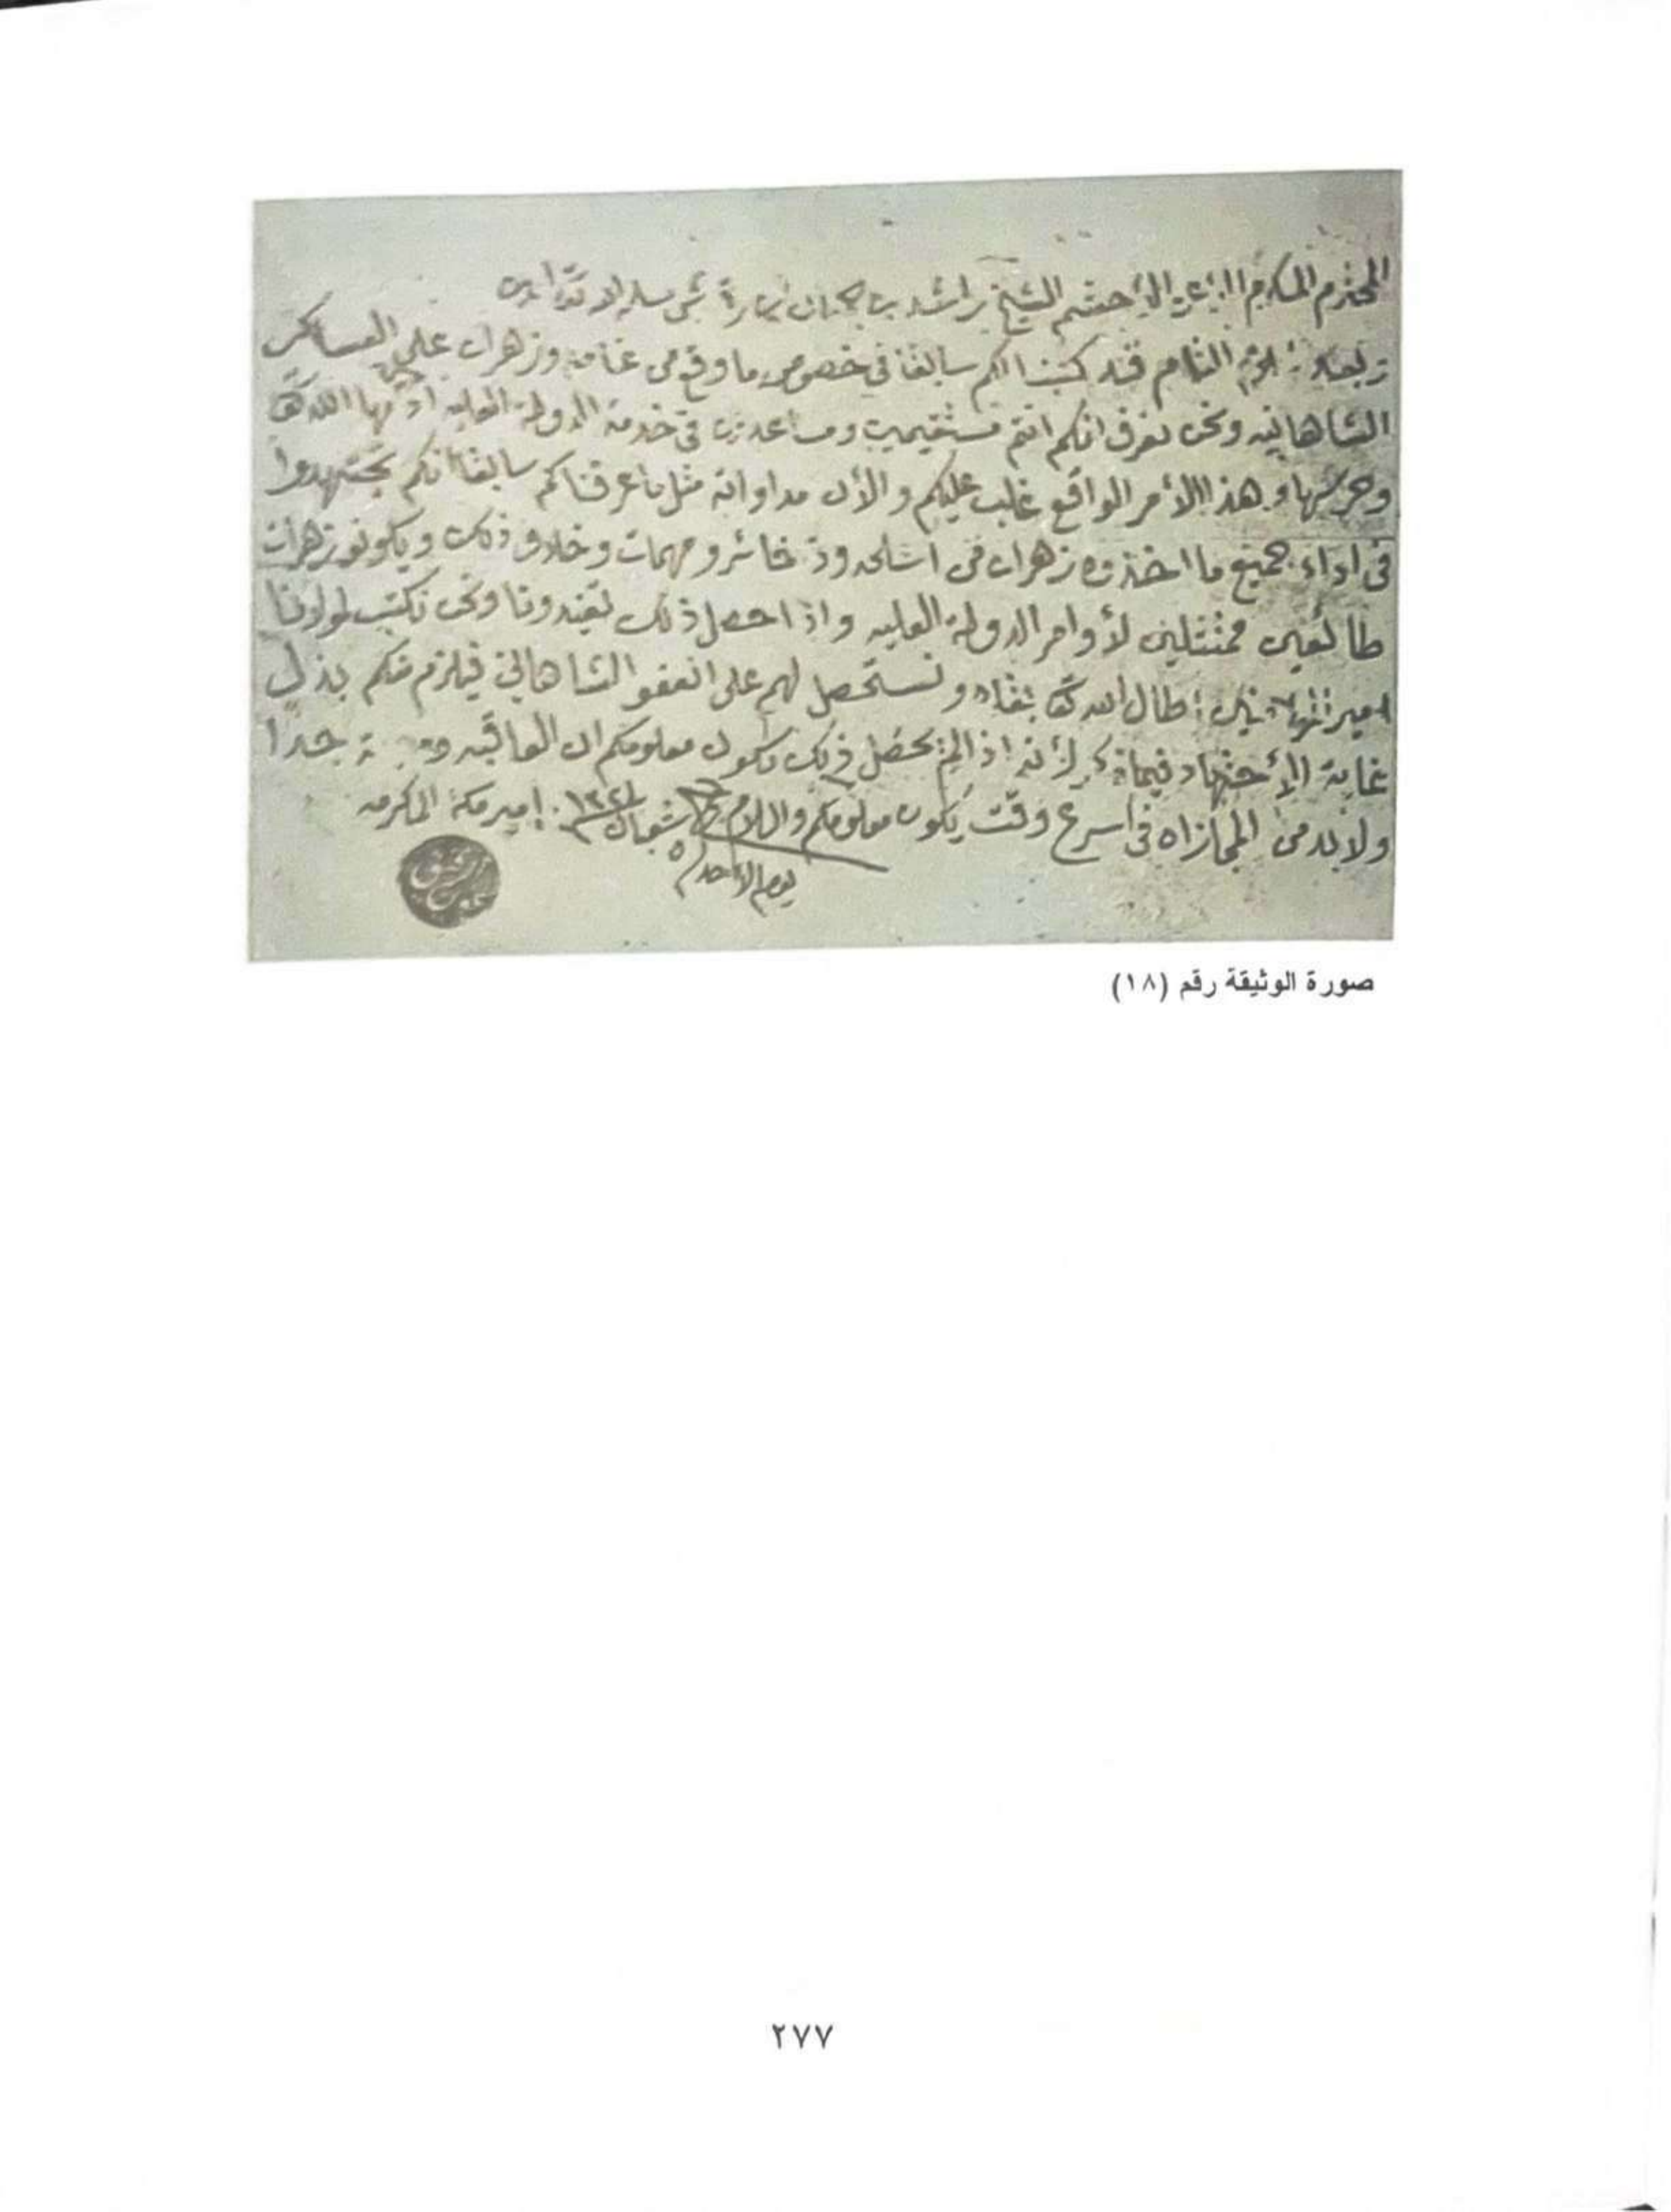 المحترم المكرم الأعز الأحشم الشيخ راشد بن جمعان سلمه الله تعالى امين
وبعد السلام التام قد كتبنا لكم سابقا في خصوص ما وقع من غامد وزهران على العساكر
الشاهانيه ونحن نعرف انكم انتم مستقيمين ومساعدين في خدمة الدولة العليه ادامها الله تعالى
وحرسها وهذا الأمر الواقع غلب عليكم والأن مداواته مثل ما عرفناكم سابقا انكم تجتهدوا
في اداء جميع ما اخذوه زهران من اسلحه وذخائر ومهمات وخلاف ذلك ويكونو زهران
طائعين ممتثلين لأوامر الدولة العليه واذا حصل ذلك تفيدونا ونحن نكتب لمولانا
امير المؤمنين اطال الله تعالى بقاه ونستحصل لهم على العفو الشاهاني فيلزم منكم بذل
غاية الأجتهاد فيما ذكر لأنه اذا لم يحصل ذلك يكون معلومكم ان العاقبه جدا
ولابد من المجازاه في اسرع وقت يكون معلومكم والسلام شعبان ١٣٢٢ امير مكة المكرمه
يوم الاحد
صورة الوثيقة رقم (١٨)
٢٧٧